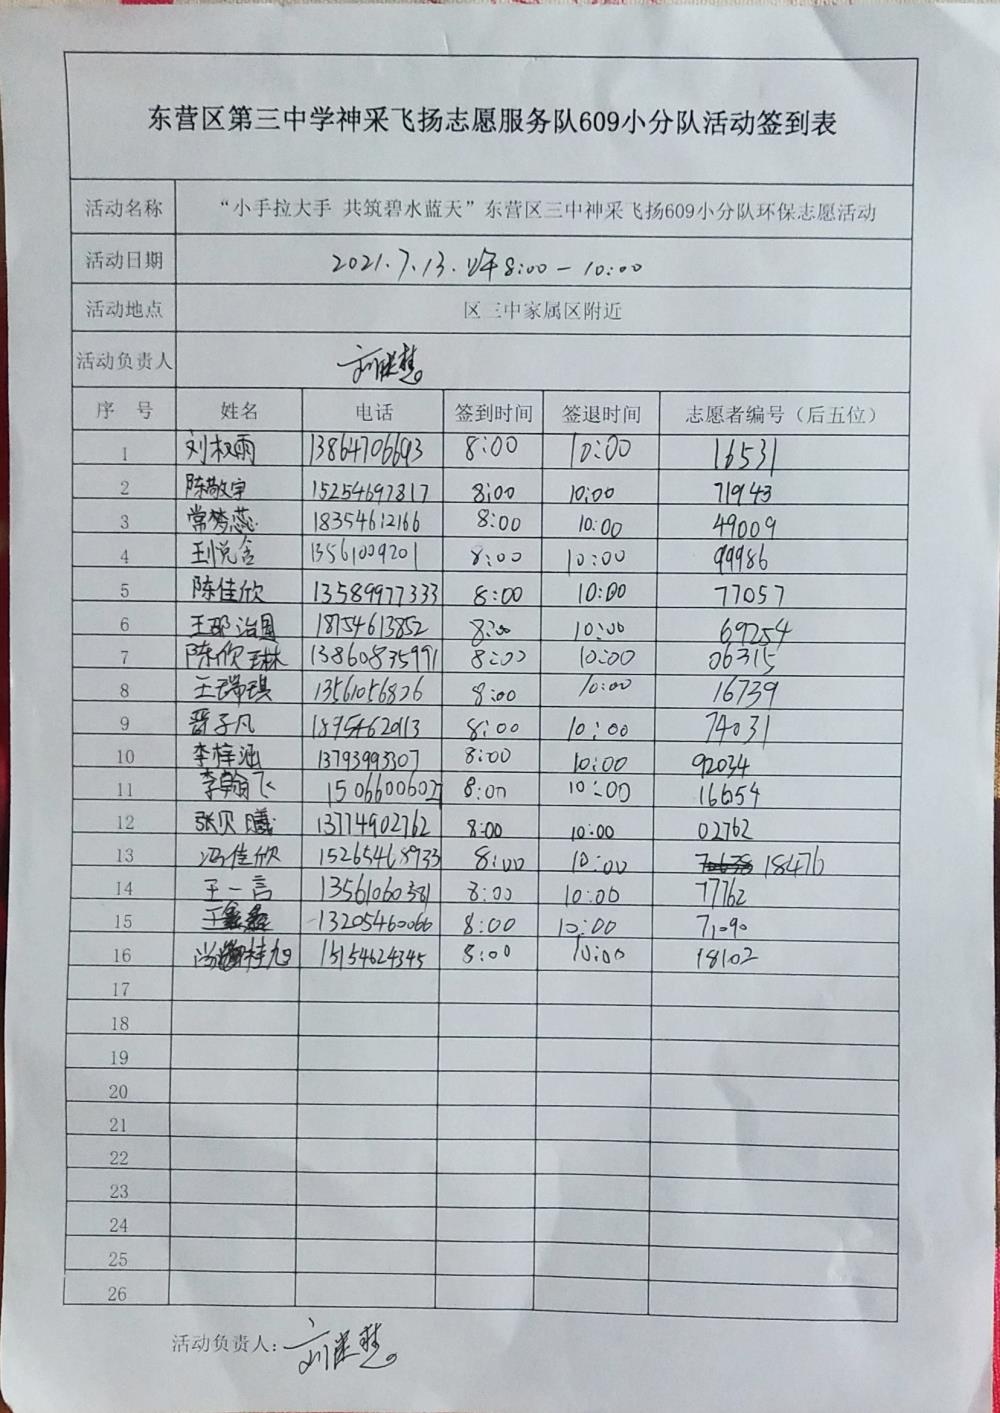 东营区第三中学神采飞扬志愿服务队609小分队活动签到表
活动名称 “小手拉大手 共筑碧水蓝天”东营区三中神采飞扬609小分队环保志愿活动
活动日期 2021.7.13. 8:00-10:00
活动地点 区三中家属区附近
活动负责人
序 号 姓名 电话 签到时间 签退时间 志愿者编号（后五位）
1 刘权雨 13864706693 8:00 10:00 16531
2 陈敬宇 15254697817 8:00 10:00 71943
3 常梦蕊 18354612166 8:00 10:00 49009
4 刘悦含 13561009201 8:00 10:00 99986
5 陈佳欣 13589977333 8:00 10:00 77057
6 王邵治国 18754613852 8:00 10:00 69254
7 陈欣琳 13860835991 8:00 10:00 06315
8 王瑞琪 13561056826 8:00 10:00 16739
9 晋子凡 18954620113 8:00 10:00 74031
10 李梓涵 13793993307 8:00 10:00 92034
11 李翰飞 15066006027 8:00 10:00 16654
12 张贝曦 13774902762 8:00 10:00 02762
13 冯佳欣 15265468933 8:00 10:00 18476
14 王一言 13561060381 8:00 10:00 77762
15 王 13205460066 8:00 10:00 71090
16 尚 桂旭 15154624345 8:00 10:00 18102
17
18
19
20
21
22
23
24
25
26
活动负责人: